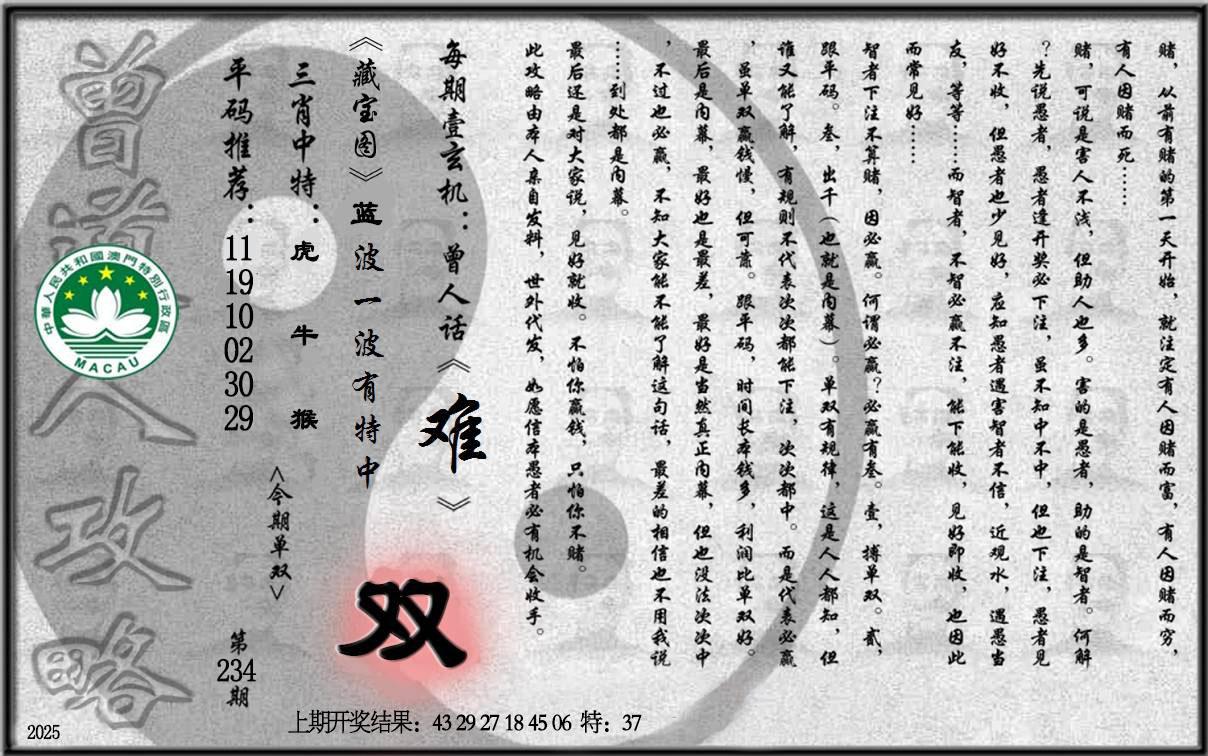 赌，从前有赌的第一天开始，就注定有人因赌而富，有人因赌而穷，
有人因赌而死……
赌，可说是害人不浅，但助人也多。害的是愚者，助的是智者。何解
？先说愚者，愚者逢开奖必下注，虽不知中不中，但也下注，愚者见
好不收，但愚者也少见好，应知愚者遇害智者不信，近观水，遇愚当
友，等等……而智者，不智必赢不注，能下能收，见好即收，也因此
而常见好……
智者下注不算赌，因必赢。何谓必赢？必赢有叁。壹，搏单双。贰，
跟平码。叁，出千（也就是内幕）。单双有规律，这是人人都知，但
谁又能了解，有规则不代表次次都能下注，次次都中。而是代表必赢
，虽单双赢钱慢，但可靠。跟平码，时间长本钱多，利润比单双好。
最后是内幕，最好也是最差，最好是当然真正内幕，但也没法次次中
，不过也必赢，不知大家能不能了解这句话，最差的相信也不用我说
……到处都是内幕。
最后还是对大家说，见好就收。不怕你赢钱，只怕你不赌。
此攻略由本人亲自发料，世外代发，如愿信本愚者必有机会收手。
每期壹玄机：曾人话《难》
《藏宝图》蓝波一波有特中
双
三肖中特：虎 牛 猴
<今期单双>
平码推荐：11 19 10 02 30 29
第234期
曾道人攻略
中華人民共和國澳門特別行政區
MACAU
上期开奖结果：43 29 27 18 45 06 特：37
2025